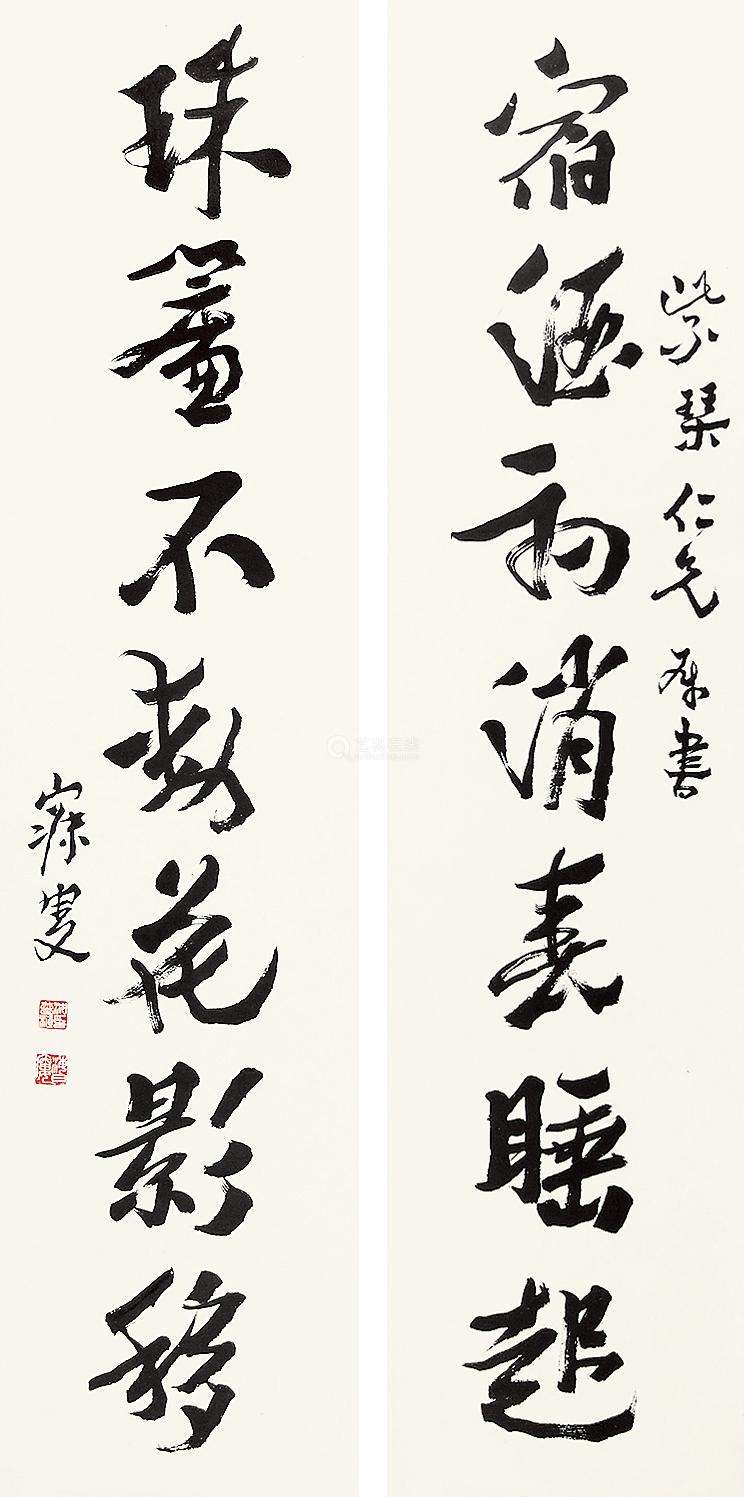 紫琹仁兄属書
宿酒初消春睡起
珠簾不動花影移
寐叟